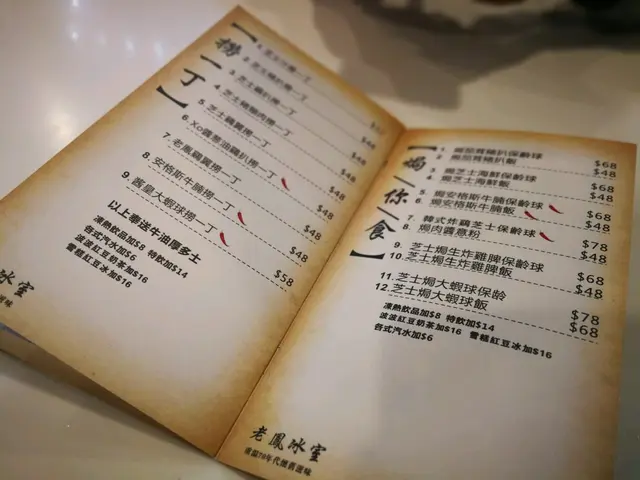 【撈一丁】
$48
$48
4. 芝士豬頸肉撈一丁
$48
5. 芝士雞翼撈一丁
$48
6. Xo醬葱油雞扒撈一丁
$48
7. 老鳳雞翼撈一丁
$48
8. 安格斯牛腩撈一丁
$48
9. 醬皇大蝦球撈一丁
$58
以上壹送牛油厚多士
凍熱飲品加$8 特飲加$14
各式汽水加$6
波波紅豆奶茶加$16
雪糕紅豆冰加$16
冰室
【焗你食】
1. 焗茄賓豬扒保齡球
$68
2. 焗茄賓豬扒飯
$48
3. 焗芝士海鮮保齡球
$68
4. 焗芝士海鮮飯
$48
5. 焗安格斯牛腩保齡球
$68
6. 焗安格斯牛腩飯
$48
7. 韓式炸雞芝士保齡球
$78
8. 焗肉醬意粉
$48
9. 芝士焗生炸雞脾保齡球
$68
10. 芝士焗生炸雞脾飯
$48
11. 芝士焗大蝦球保齡
$78
12. 芝士焗大蝦球飯
$68
凍熱飲品加$8 特飲加$14
波波紅豆奶茶加$16 雪糕紅豆冰加$16
各式汽水加$6
老鳳冰室
重温70年代懷舊滋味